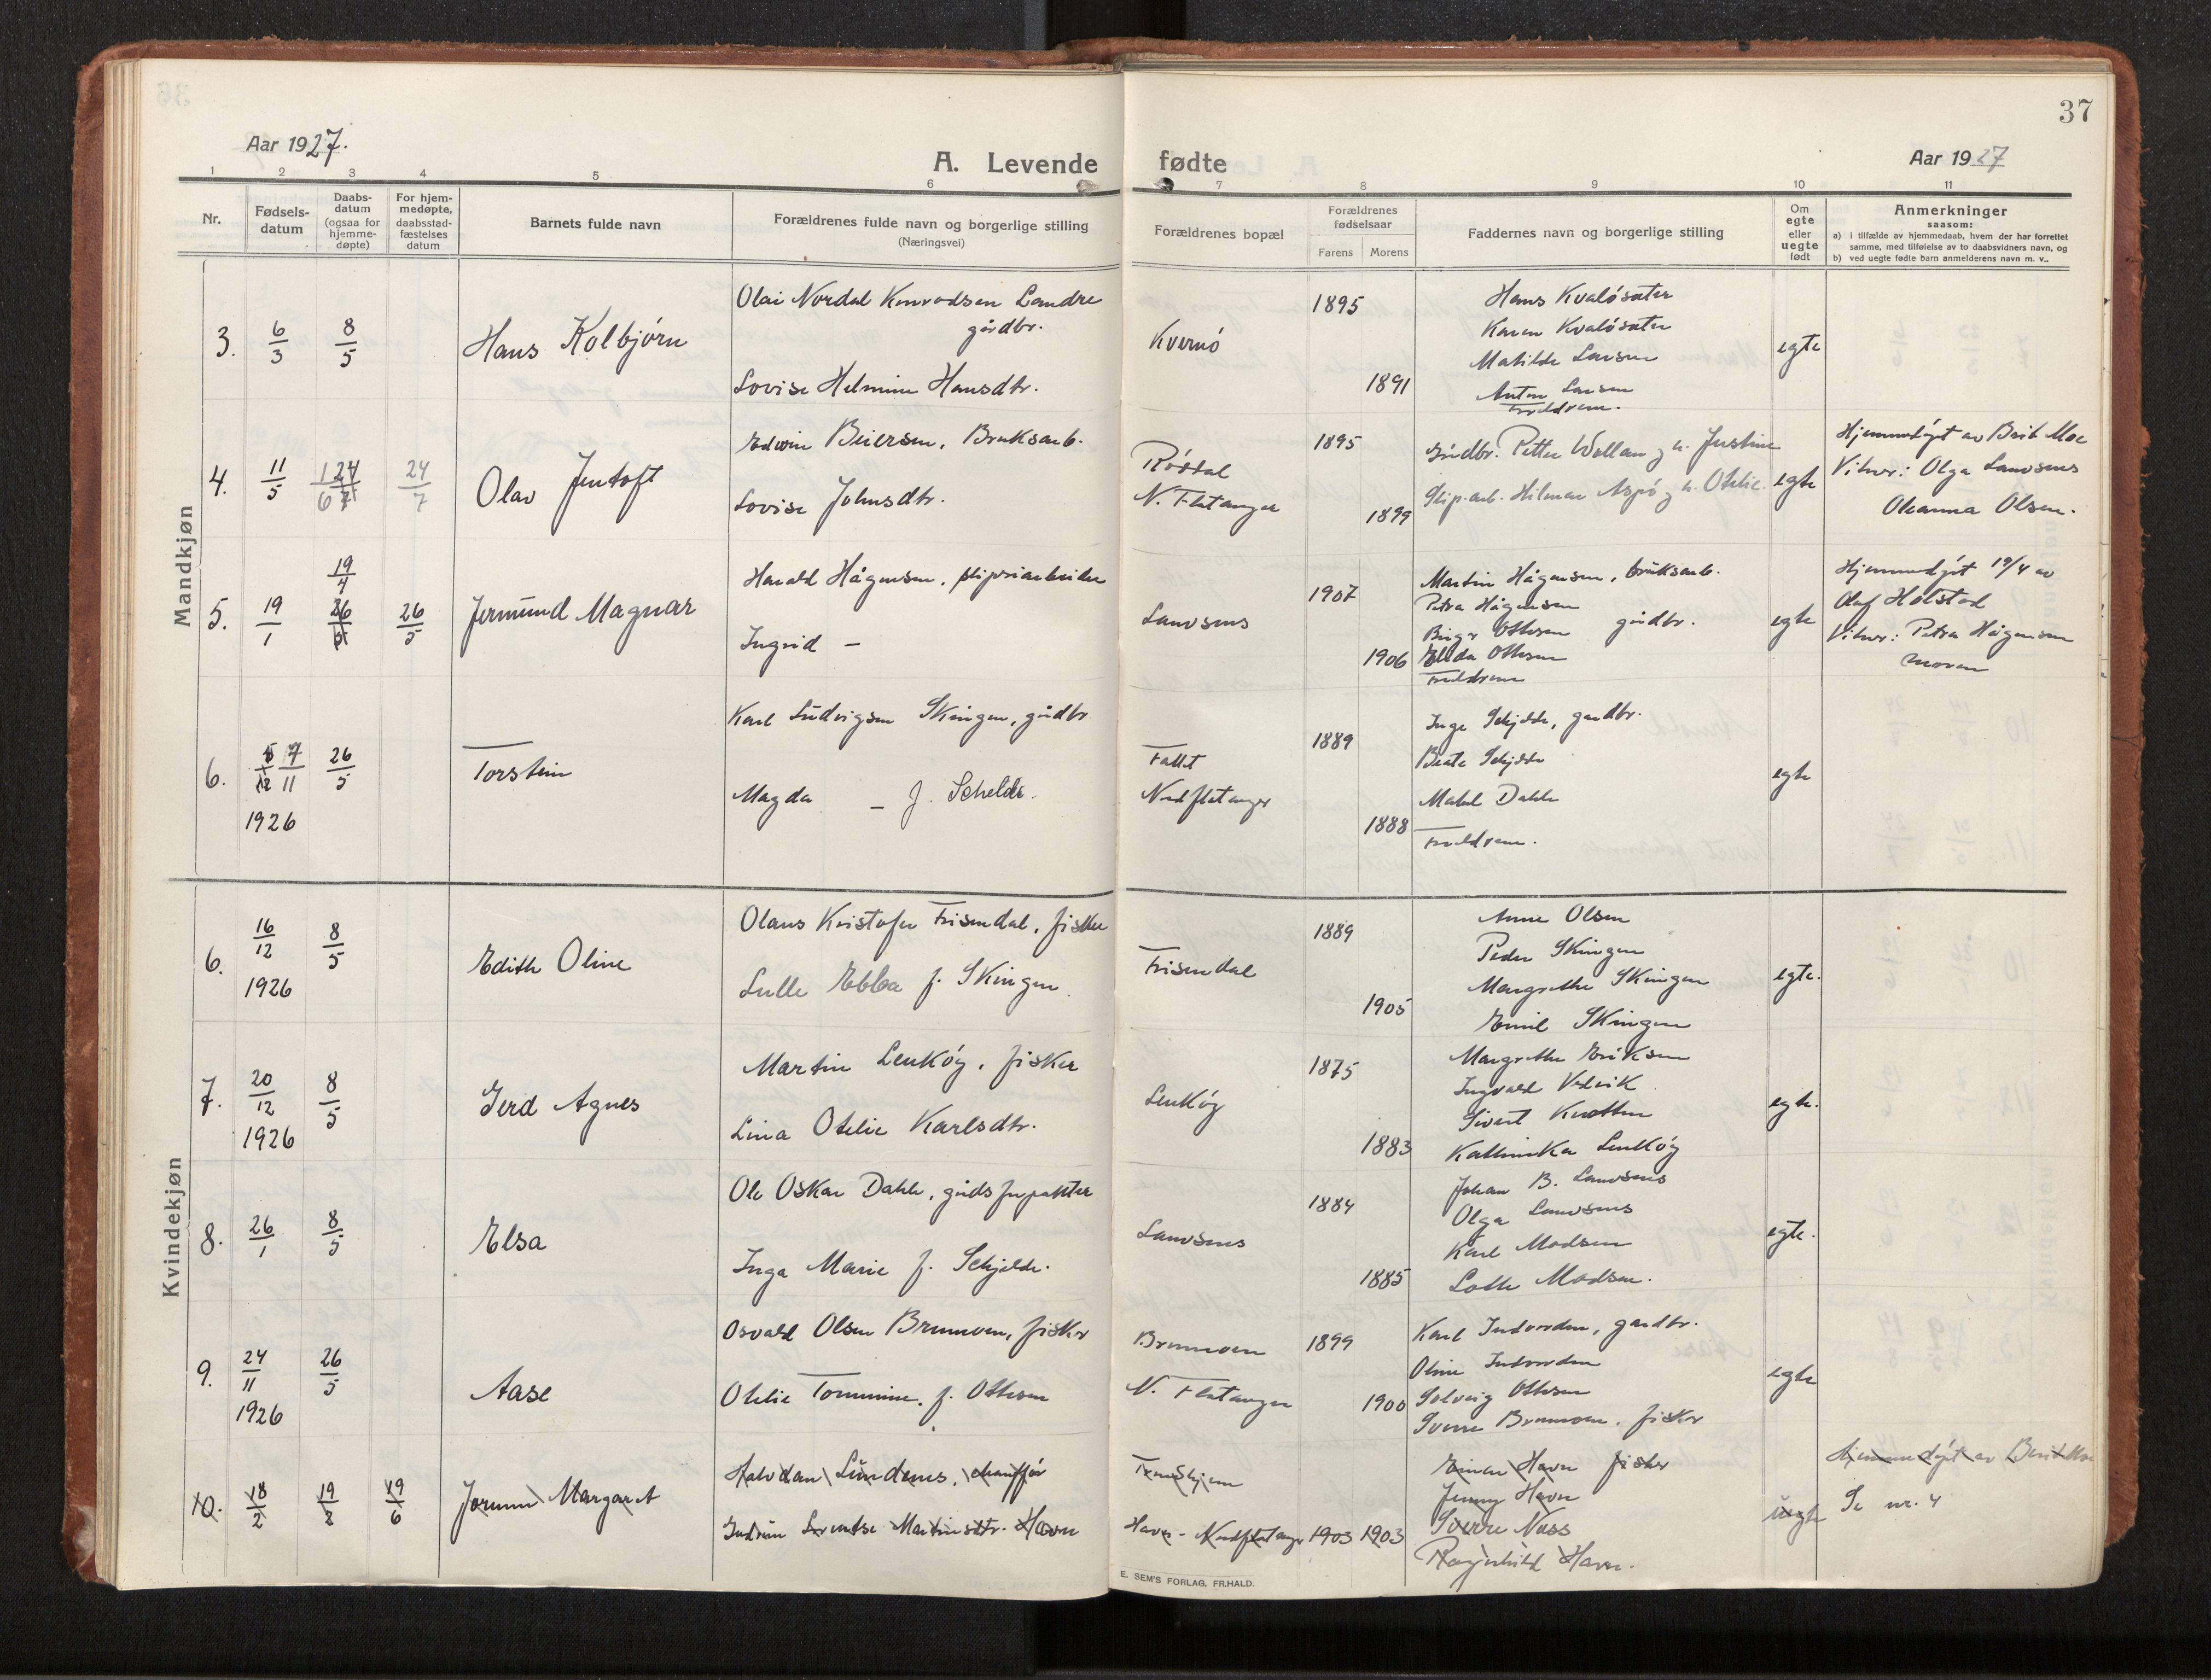 Aar 1927.
A. Levende fødte
Aar 1927
37
1 2 3 4 5 6 7 8 9 10 11
Nr.
Fødsels-
datum
Daabs-
datum
(ogsaa for
hjemme-
døpte)
For hjem-
medøpte,
daabsstad-
fæstelses
datum
Barnets fulde navn
Forældrenes fulde navn og borgerlige stilling
(Næringsvei)
Forældrenes bopæl
Forældrenes
fødselsaar
Farens Morens
Faddernes navn og borgerlige stilling
Om
egte
eller
uegte
født
Anmerkninger
saasom:
a) i tilfælde av hjemmedaab, hvem der har forrettet
samme, med tilføielse av to daabsvidners navn, og
b) ved uegte fødte barn anmelderens navn m. v..
Mandkjøn
3. 6/3 8/5 Hans Kolbjørn
Olai Nordal Konradsen Landre
gårdbr.
Lovise Helmine Hansdtr.
Kvernø
1895
1891
Hans Kvaløsæter
Karen Kvaløsæter
Matilde Larsen
Anton Larsen
Foreldrene.
egte
4. 11/5 24/7 24/7 Olav Jentoft
Edvin Beiersen, Bruksarb.
Lovise Johnsdtr.
Rødtal
N. Flatanger
1895
1899
Gårdbr. Petter Wollan og h. Justine
Slip.arb. Hilmar Aspø og h. Otelie.
egte
Hjemmedøpt av Berit Moe
Vitner: Olga Lauvsnes
Oleanna Olsen.
5. 19/1 19/4 26/5 26/5 Jermund Magnar
Harald Hågensen, sliperiarbeider
Ingrid —
Lauvsnes
1907
1906
Martin Hågensen, bruksarb.
Petra Hågensen
Birger Ottesen gårdbr.
Elida Ottesen
Foreldrene
egte
Hjemmedøpt 19/4 av
Olaf Halstad
Vitner: Petra Hågensen
moren
6. 5/12 7/11 1926 26/5 Torstein
Karl Ludvigsen Skingen, gårdbr
Magda — f. Schelde.
Fallt
Nedflatanger
1889
1888
Inge Schjelde, gardbr.
Beate Schjelde
Mabel Dahle
Foreldrene.
egte
Kvindekjøn
6. 16/12 1926 8/5 Edith Oline
Olaus Kristofer Frisendal, fisker
Lulle Ebba f. Skingen.
Frisendal
1889
1905
Anne Olsen
Peder Skingen
Margrethe Skingen
Emil Skingen
egte.
7. 20/12 1926 8/5 Gerd Agnes
Martin Leukøy, fisker
Lina Otelie Karlsdtr.
Leukøy
1875
1883
Margrethe Eriksen
Ingvald Vedvik
Sivert Knotten
Kathinka Leukøy
egte.
8. 26/1 8/5 Elsa
Ole Oskar Dahle, gårdsforpakter
Inga Marie f. Schjelde.
Lauvsnes
1884
1885
Johan B. Lauvsnes
Olga Lauvsnes
Karl Madsen
Lotte Madsen.
egte.
9. 24/11 1926 26/5 Aase
Osvald Olsen Brunvoen, fisker
Otelie Tommine, f. Ottesen
Brunvoen
N. Flatanger
1899
1900
Karl Indvorden, gardbr.
Oline Indvorden
Solveig Ottesen
Sverre Brunvoen, fisker
egte
10. 18/2 19/2 19/6 Jorunn Margaret
Halvdan Lundsnes, chauffør
Gudrun Lorentse Martinsdtr. Havn
Trondhjem
Havn - Nedflatanger
1903 1903
Einar Havn fisker
Jenny Havn
Sverre Næss
Ragnhild Havn.
uegte
Hjemmedøpt av Berit Moe
Se nr. 4
E. SEM'S FORLAG, FR.HALD.